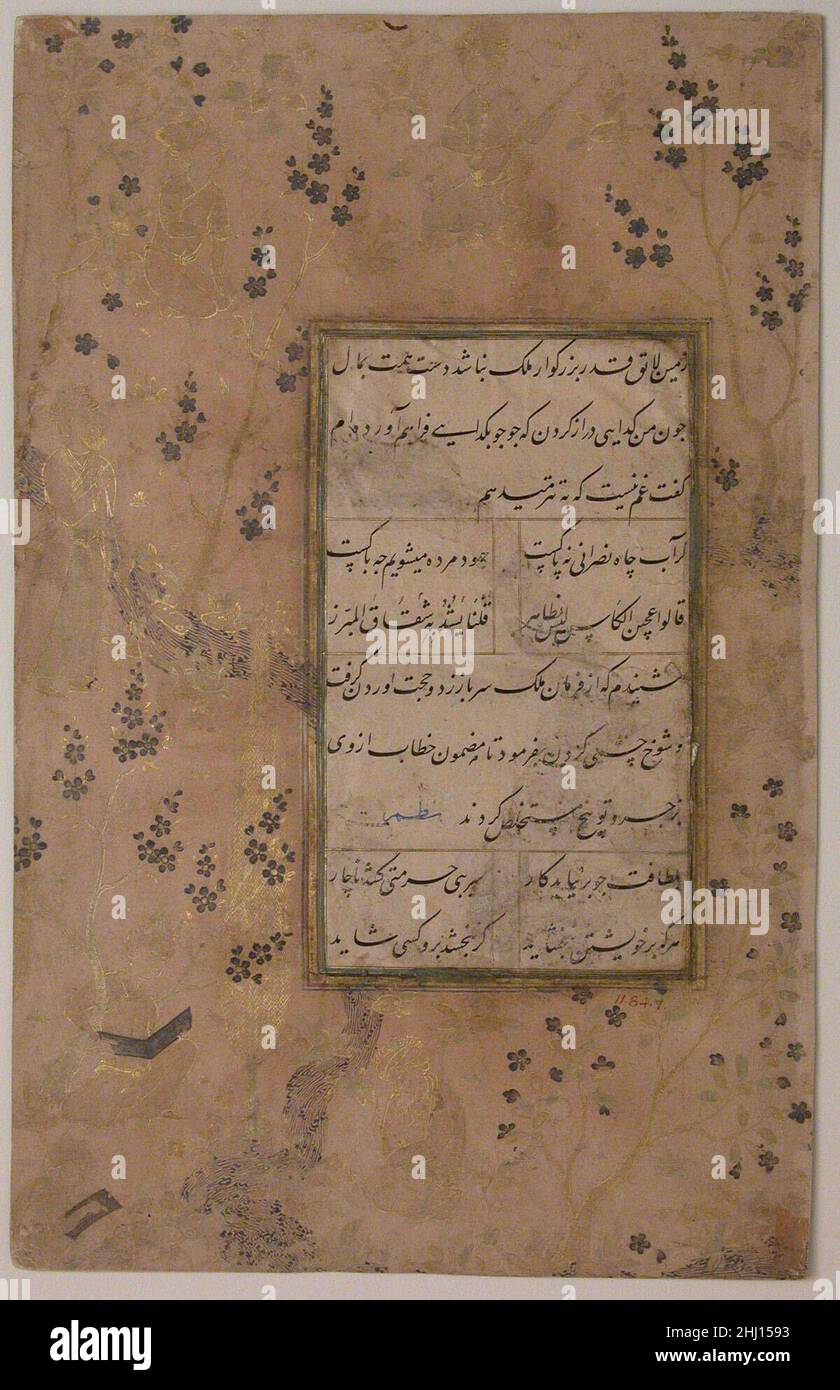 زمین لایق قدر بزرکوار ملک نباشد دست همت بمال
چون من کدایی دراز کردن که جو جو بکدایی فراهم آورده ام
کفت غم نیست که به تتر میدهم
کر آب چاه نصرانی نه پاکست جهود مرده میشویم چه باکست
قالوا عجین لیس بطاهر قلنا به شقاق المبرز
شنیدم که از فرمان ملک سر باز زد و حجت اوردن کرفت
و شوخ چشمی کردن بفرمود تا مضمون خطاب ازوی
بزجر و توبیخ مستخلص کردند نظم
بلطافت چو برنیاید کار سر ببی حرمتی کشد ناچار
هرکه بر خویشتن نبخشاید کر نبخشد برو کسی شاید
11.84.7
alamy
Image ID: 2HJ1593
www.alamy.com